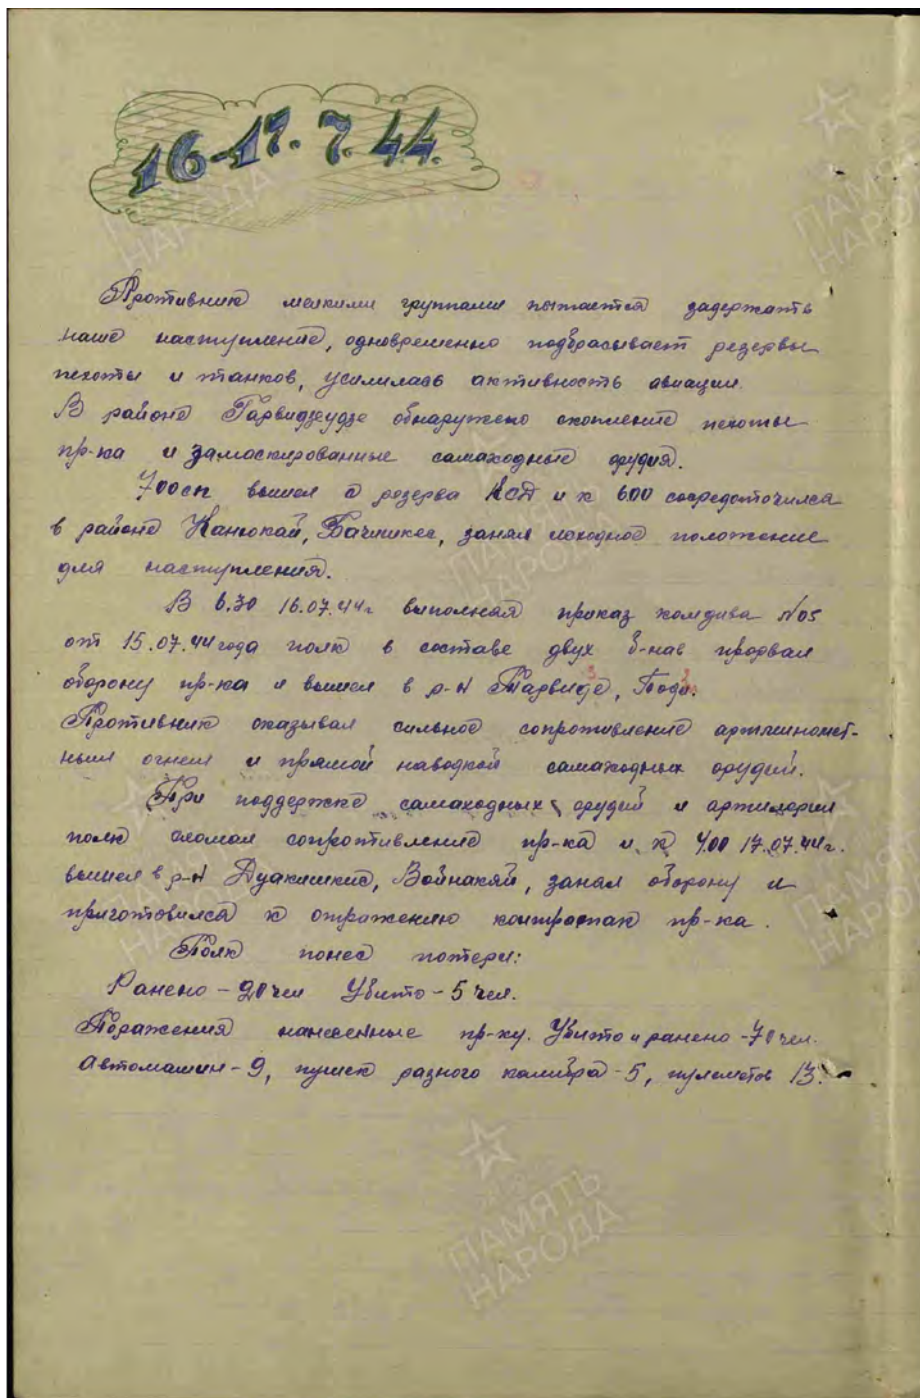 16-17. 7. 44.
Противник мелкими группами пытается задержать
наше наступление, одновременно подбрасывает резервы
пехоты и танков, усилилась активность авиации.
В районе Гарвидзеудзе обнаружено скопление пехоты
пр-ка и замаскированные самаходные орудия.
700сп вышел с резерва КСД и к 600 сосредоточился
в районе Канюкай, Бачишкес, занял исходное положение
для наступления.
В 6.30 16.07.44г выполняя приказ комдива №05
от 15.07.44 года полк в составе двух б-нав прорвал
оборону пр-ка и вышел в р-н
Противник оказывал сильное сопротивление артминомёт-
ным огнем и прямой наводкой самаходных орудий.
При поддержке самаходных орудий и артилерии
полк сломал сопротивление пр-ка и к 4.00 17.07.44г.
вышел в р-н Дуакишкис, Войнакяй, занял оборону и
приготовился к отражению контратак пр-ка.
Полк понес потери:
Ранено - 20 чел Убито - 5 чел.
Поражения нанесенные пр-ку. Убито и ранено - 70 чел.
Автомашин - 9, пушек разного калибра - 5, пулеметов 13.
ПАМЯТЬ
НАРОДА